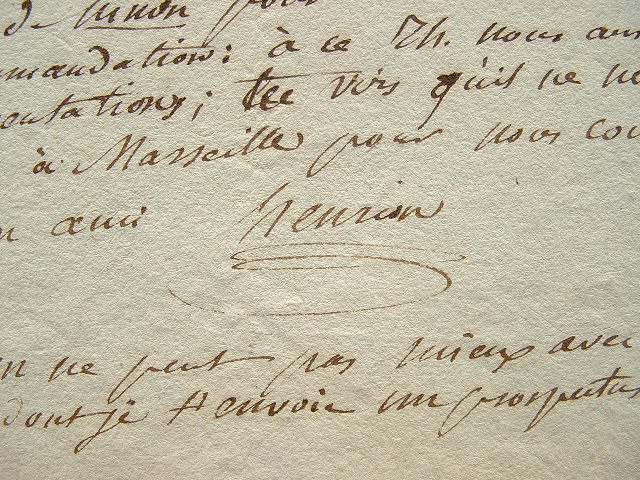 de Ninon pour
mmandation: à ce Th. nous au
entations; tu vois qu'il ne ne
à Marseille pour nous cou
n ami Henrion
n ne peut pas mieux avec
dont je t'envoie un prospectus